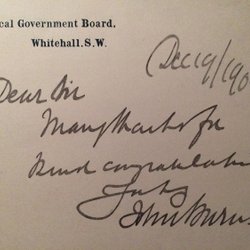 cal Government Board,
Whitehall. S.W.
Dec 19/190
Dear Sir
Many thanks for
kind congratulations
John Burns